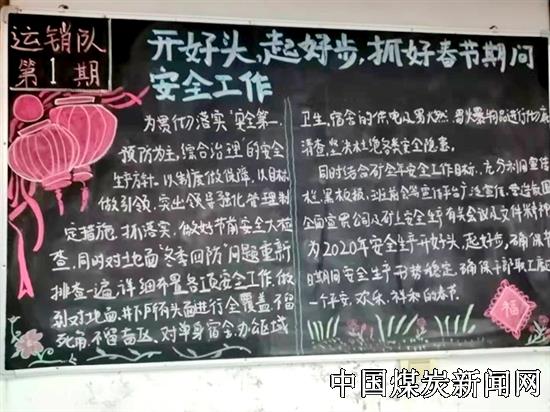 运销队
第1期
开好头,起好步,抓好春节期间
安全工作
为贯彻落实“安全第一,
预防为主,综合治理”的安全
生产方针,以制度做保障,以目标
做引领,突出领导强化管理制
定措施,抓落实,做好节前安全大检
查,同时对地面“冬季四防”问题重新
排查一遍,详细布置各项安全工作,做
到对地面,井下所有头面进行全覆盖,不留
死角,不留盲区,对单身宿舍,办公区域
卫生,宿舍的供电及易燃易爆物品进行彻底
清查,坚决杜绝各类安全隐患。
同时结合矿全年安全工作目标,充分利用宣传
栏,黑板报,班前会等宣传平台广泛宣传,营造氛围
全面宣贯公司及矿上安全生产有关会议及文件精神
为2020年安全生产开好头,起好步,确保节
日期间安全生产形势稳定,确保干部职工度过
一个平安,欢乐,祥和的春节。
福
中国煤炭新闻网